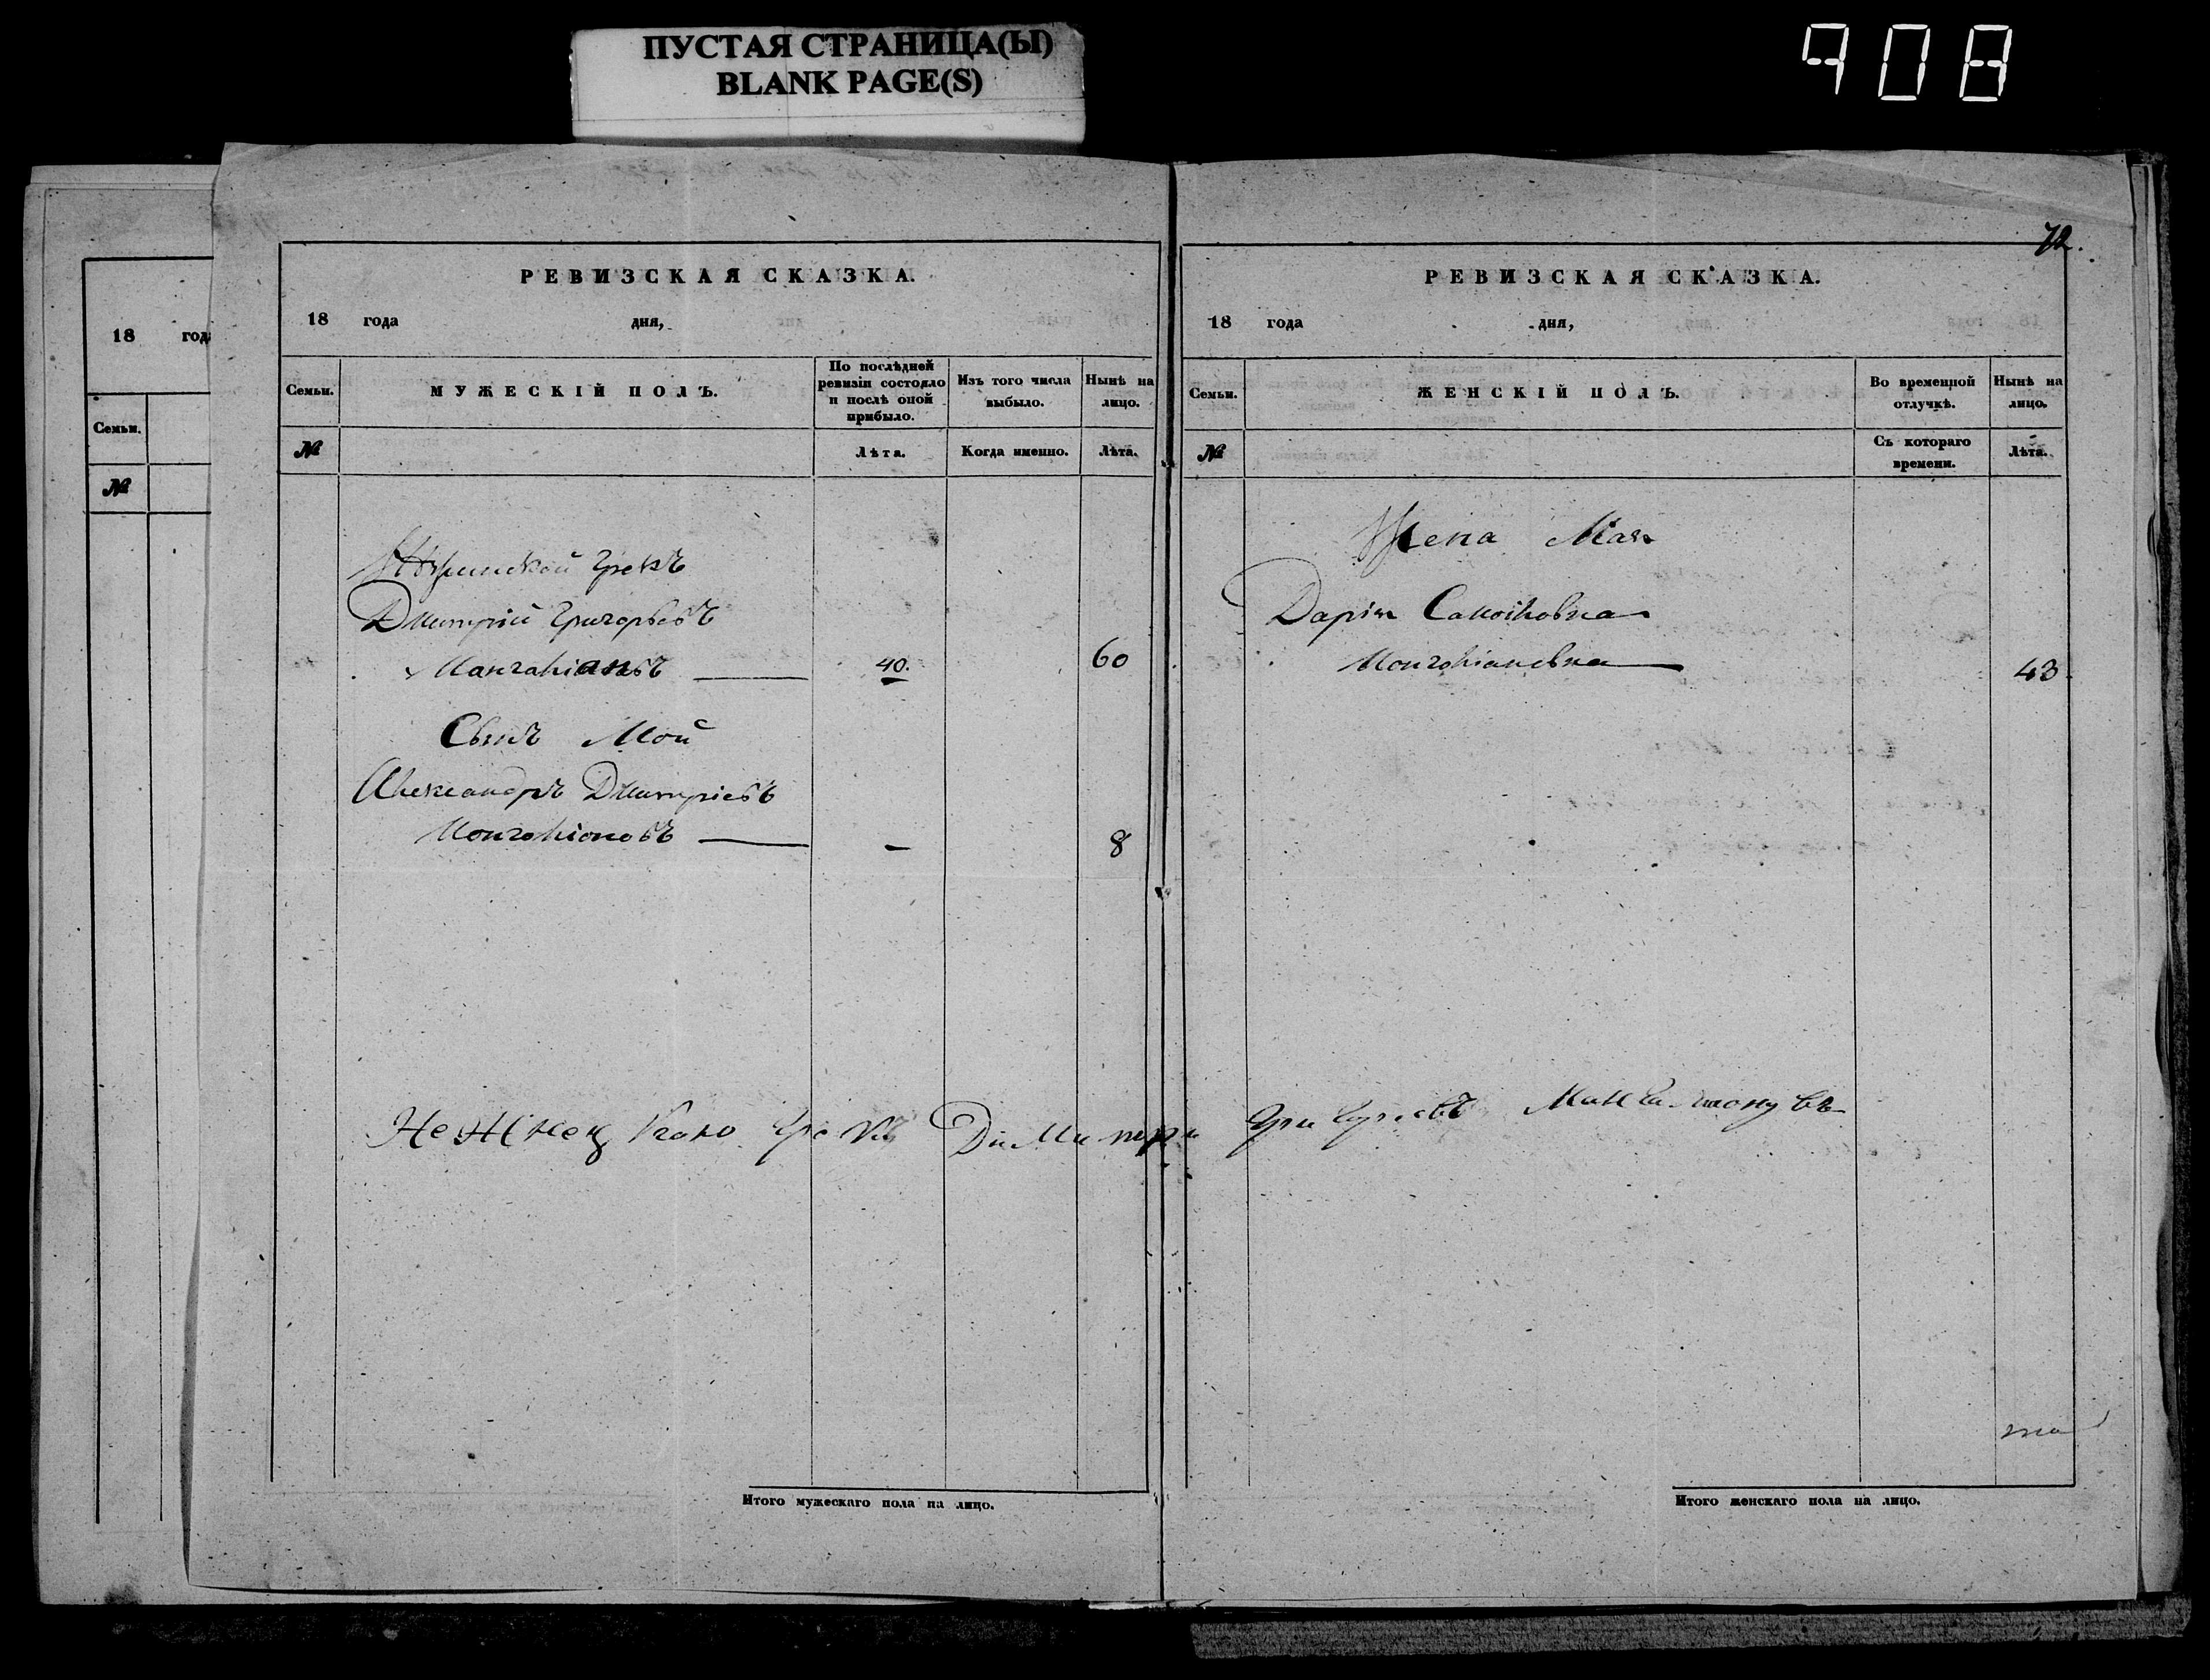 ПУСТАЯ СТРАНИЦА(Ы)
BLANK PAGE(S)
908
18 года
Семьи.
№
РЕВИЗСКАЯ СКАЗКА.
18 года дня,
Семьи.
МУЖЕСКІЙ ПОЛЪ.
По послѣдней ревизіи состояло и послѣ оной прибыло.
Изъ того числа выбыло.
Нынѣ на лицо.
№
Лѣта.
Когда именно.
Лѣта.
Нѣжинской Грекъ
Дмитрій Григорьевъ
40. 60
Сынъ Мой
Александръ Дмитріевъ
— 8
Итого мужескаго пола на лицо.
72.
РЕВИЗСКАЯ СКАЗКА.
18 года дня,
Семьи.
ЖЕНСКІЙ ПОЛЪ.
Во временной отлучкѣ.
Нынѣ на лицо.
№
Съ котораго времени.
Лѣта.
Жена Моя
Дарія
43
Итого женскаго пола на лицо.